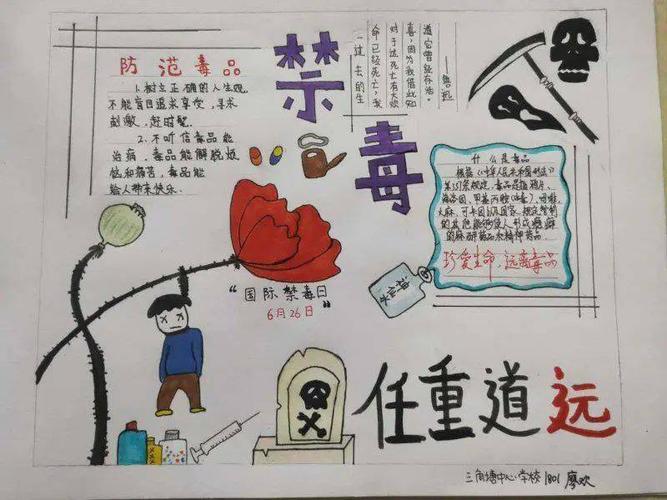 禁毒
防范毒品
1.树立正确的人生观,
不能盲目追求享受,寻求
刺激,赶时髦.
2.不听信毒品能
治病,毒品能解脱烦
恼和痛苦,毒品能
给人带来快乐.
过去的生
命已经死亡,我
对于这死亡有大欢
喜,因为我借此知
道它曾经存活。
——鲁迅
什么是毒品
根据《中华人民共和国刑法》
第357条规定,毒品是指鸦片、
海洛因、甲基苯丙胺(冰毒)、吗啡、
大麻、可卡因以及国家规定管制
的其他能够使人形成瘾癖
的麻醉药品和精神药品.
珍爱生命,远离毒品
“国际禁毒日
6月26日”
神仙水
任重道远
三角塘中心学校 1801 廖欢